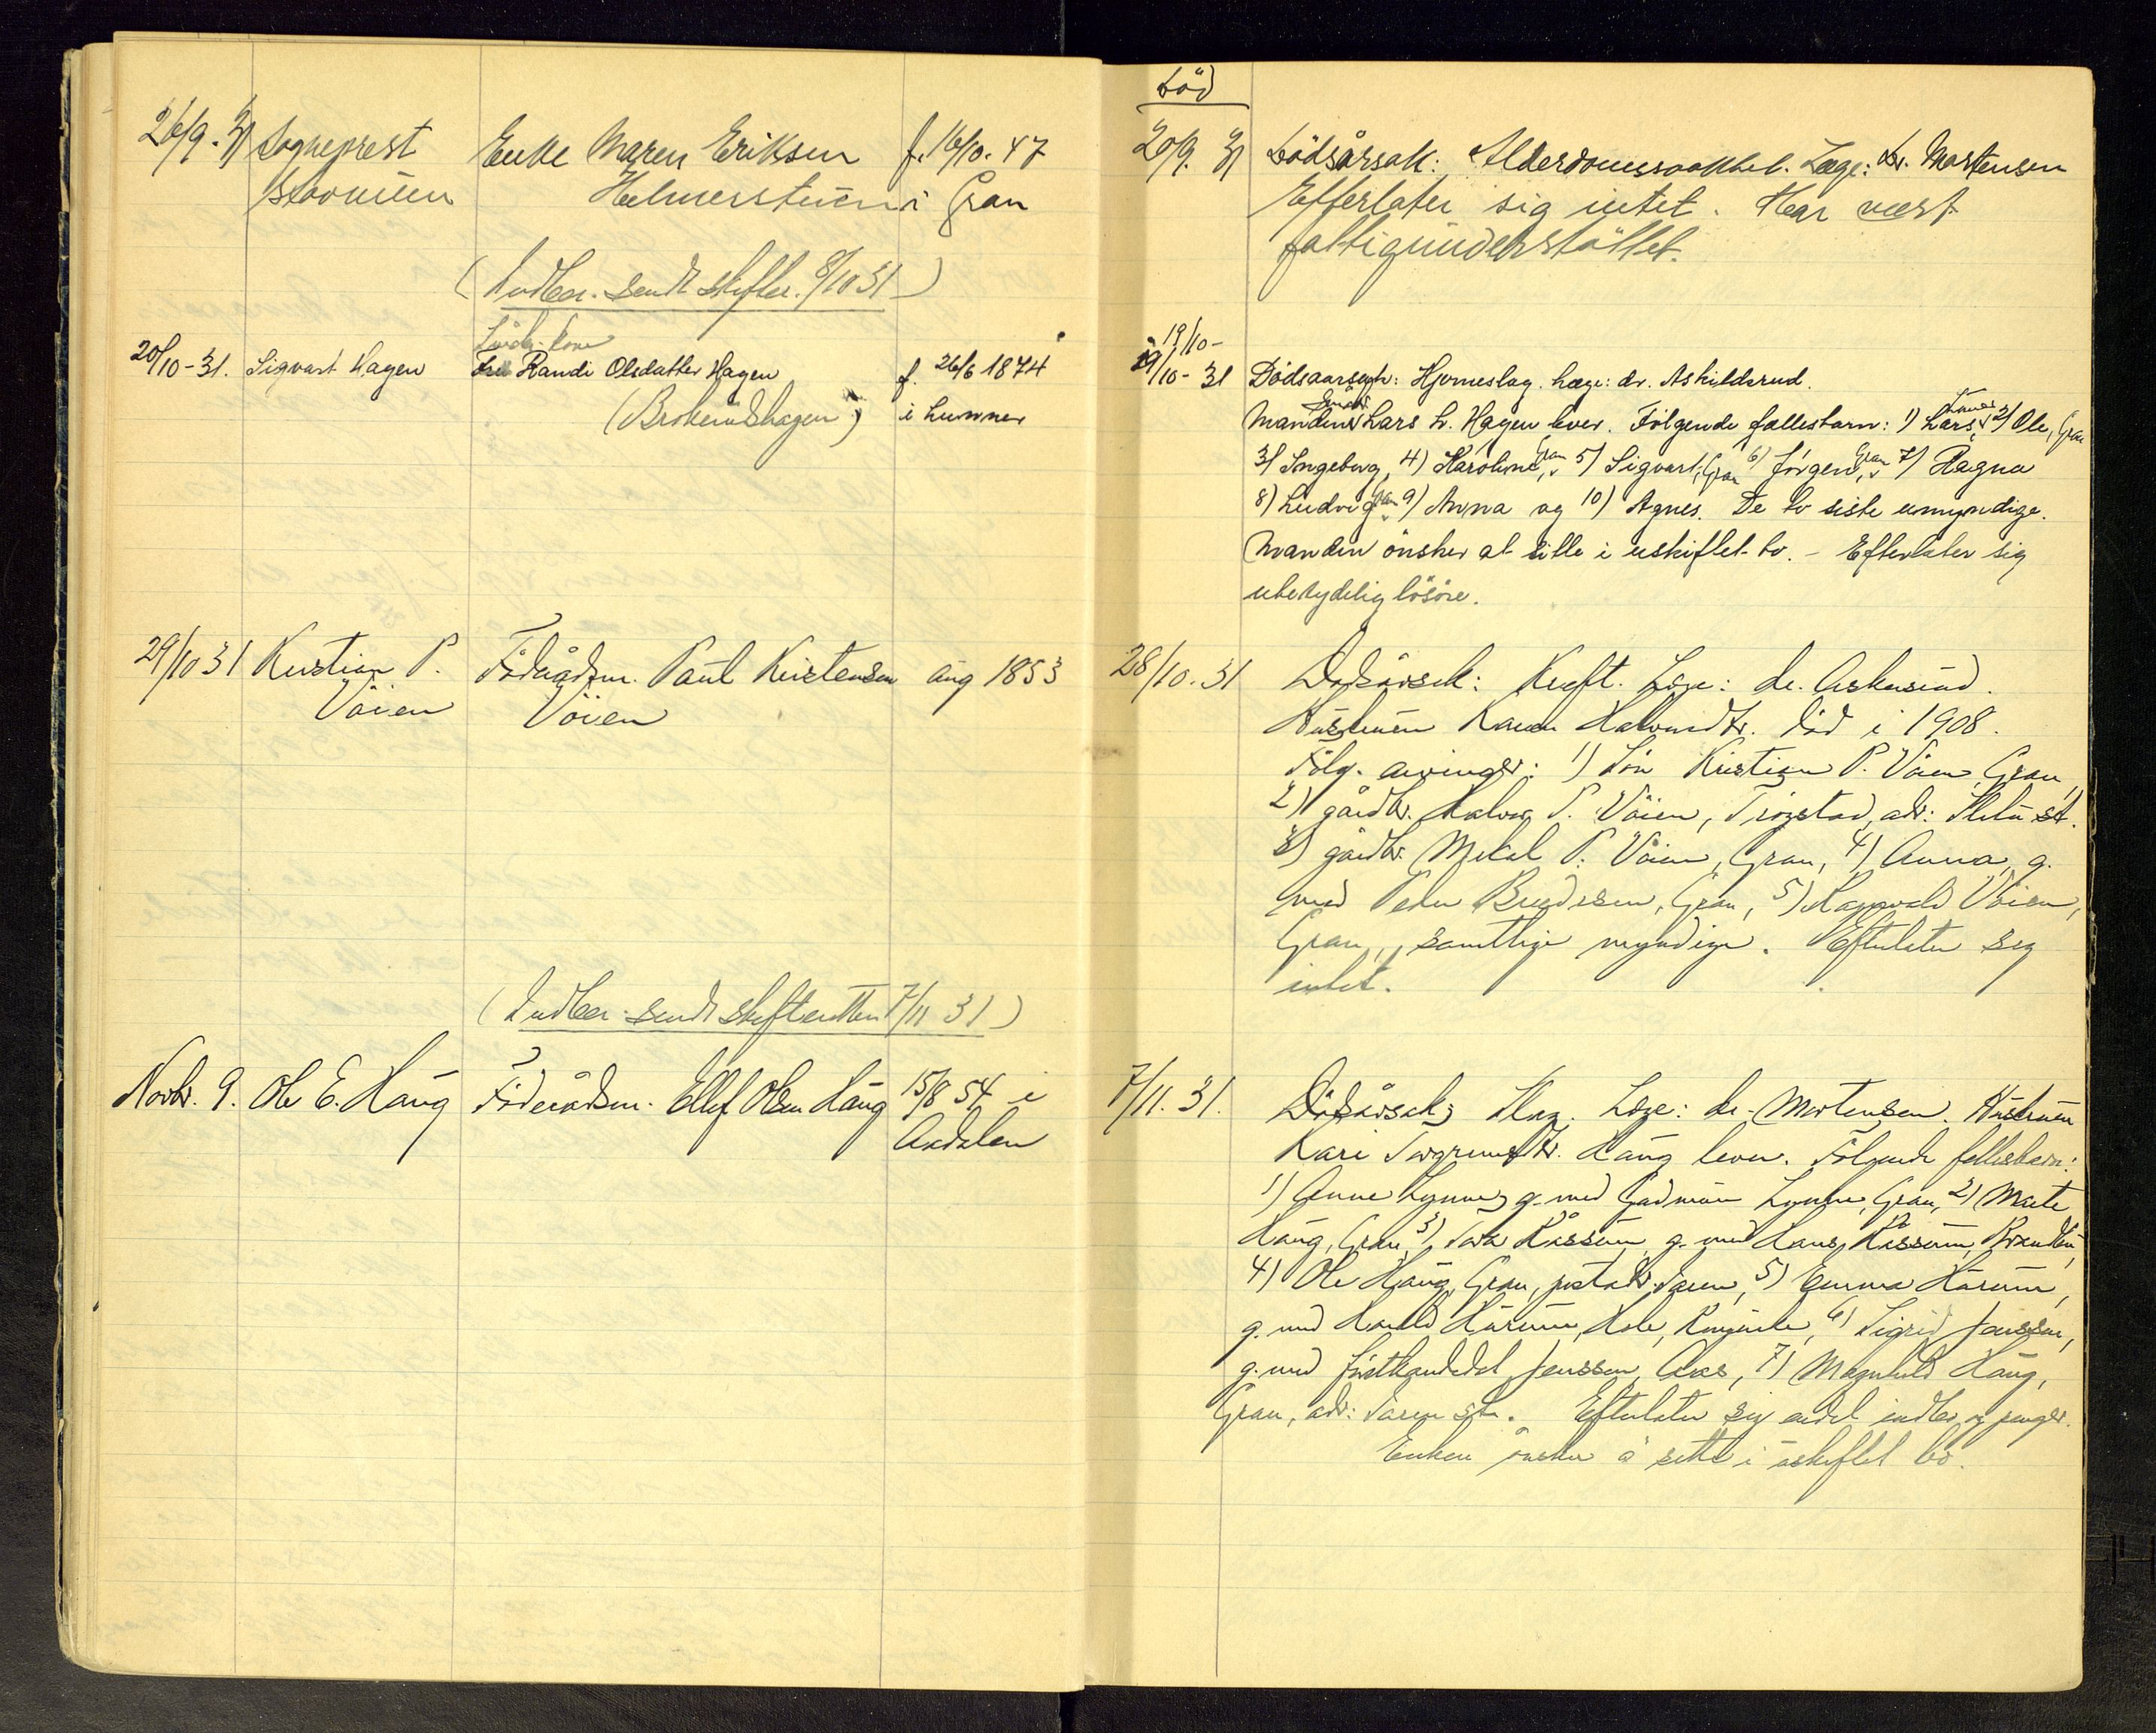 Död
26/9-31 Sogneprest Enke Maren Eriksen f. 16/10. 47
Helmerstuen i Gran
20/9. 31 Dödsårsak: Alderdomssvakhet. Læge: Dr. Mortensen
Efterlater sig intet. Har vært
fattigunderstöttet.
(Indber. sendt skifter. 8/10 31)
kone
20/10-31. Sigvart Hagen Fru Randi Olsdatter Hagen f. 26/6 1874
(Brokerudshagen) i Lunner
19/10-
19/10-31 Dödsaarsak: Hjerneslag. Læge: dr. Askildsrud.
Manden Lars L. Hagen lever. Følgende fællesbarn: 1) Lars, 2) Ole, Gran
3) Ingeborg, 4) Karoline, Gran 5) Sigvart, Gran 6) Jörgen, Gran 7) Ragna
8) Ludvig Gran 9) Anna og 10) Agnes. De to siste umyndige.
Manden önsker at sitte i uskiftet bo. - Efterlater sig
ubetydelig lösöre.
29/10 31 Kristian P. Föderådsm. Paul Kristensen aug 1853
Vöien Vöien
28/10. 31 Dödsårsak: Kreft. Læge: dr.
Hustruen Karen Halvorsdtr. död i 1908.
Fölg. arvinger: 1) Sön Kristian P. Vöien, Gran,
2) gårdbr. Halvor P. Vöien, Trögstad, adr: st.
3) gårdbr. Mikal P. Vöien, Gran, 4) Anna, g.
med Peder Gran, 5) Vöien,
Gran, samtlige myndige. Efterlater sig
intet.
(Indber. sendt skifteretten 7/11 31)
Novbr. 9. Ole E. Haug Föderådsm. Ellef Olsen Haug 15/8 54 i
Aadalen
7/11. 31. Dödsårsak: Slag. Læge: dr. Mortensen. Hustruen
Kari Torgrimsdtr. Haug lever. Följende fellesbarn:
1) Anne Lynne, g. med Gudmun Lynne, Gran, 2) Marte
Haug, Gran, 3) Råssum, g. med Hans Råssum, Brandbu,
4) Ole Haug, Gran, postadr. Jaren, 5) Emma Hårum,
g. med Harald Hårum, Hole, Ringerike, 6) Sigrid Jenssen,
g. med Jenssen, 7) Magnhild Haug,
Gran, adr: Jaren st. Efterlater sig endel indbo og penger.
Enken önsker å sitte i uskiftet bo.